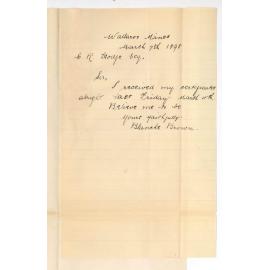 Wallaroo Mines
March 7th 1898
C R Hodge Esq.
Sir,
I received my certificate
alright last Friday March 4th
Believe me to be
Yours faithfully
Blanche Brown.